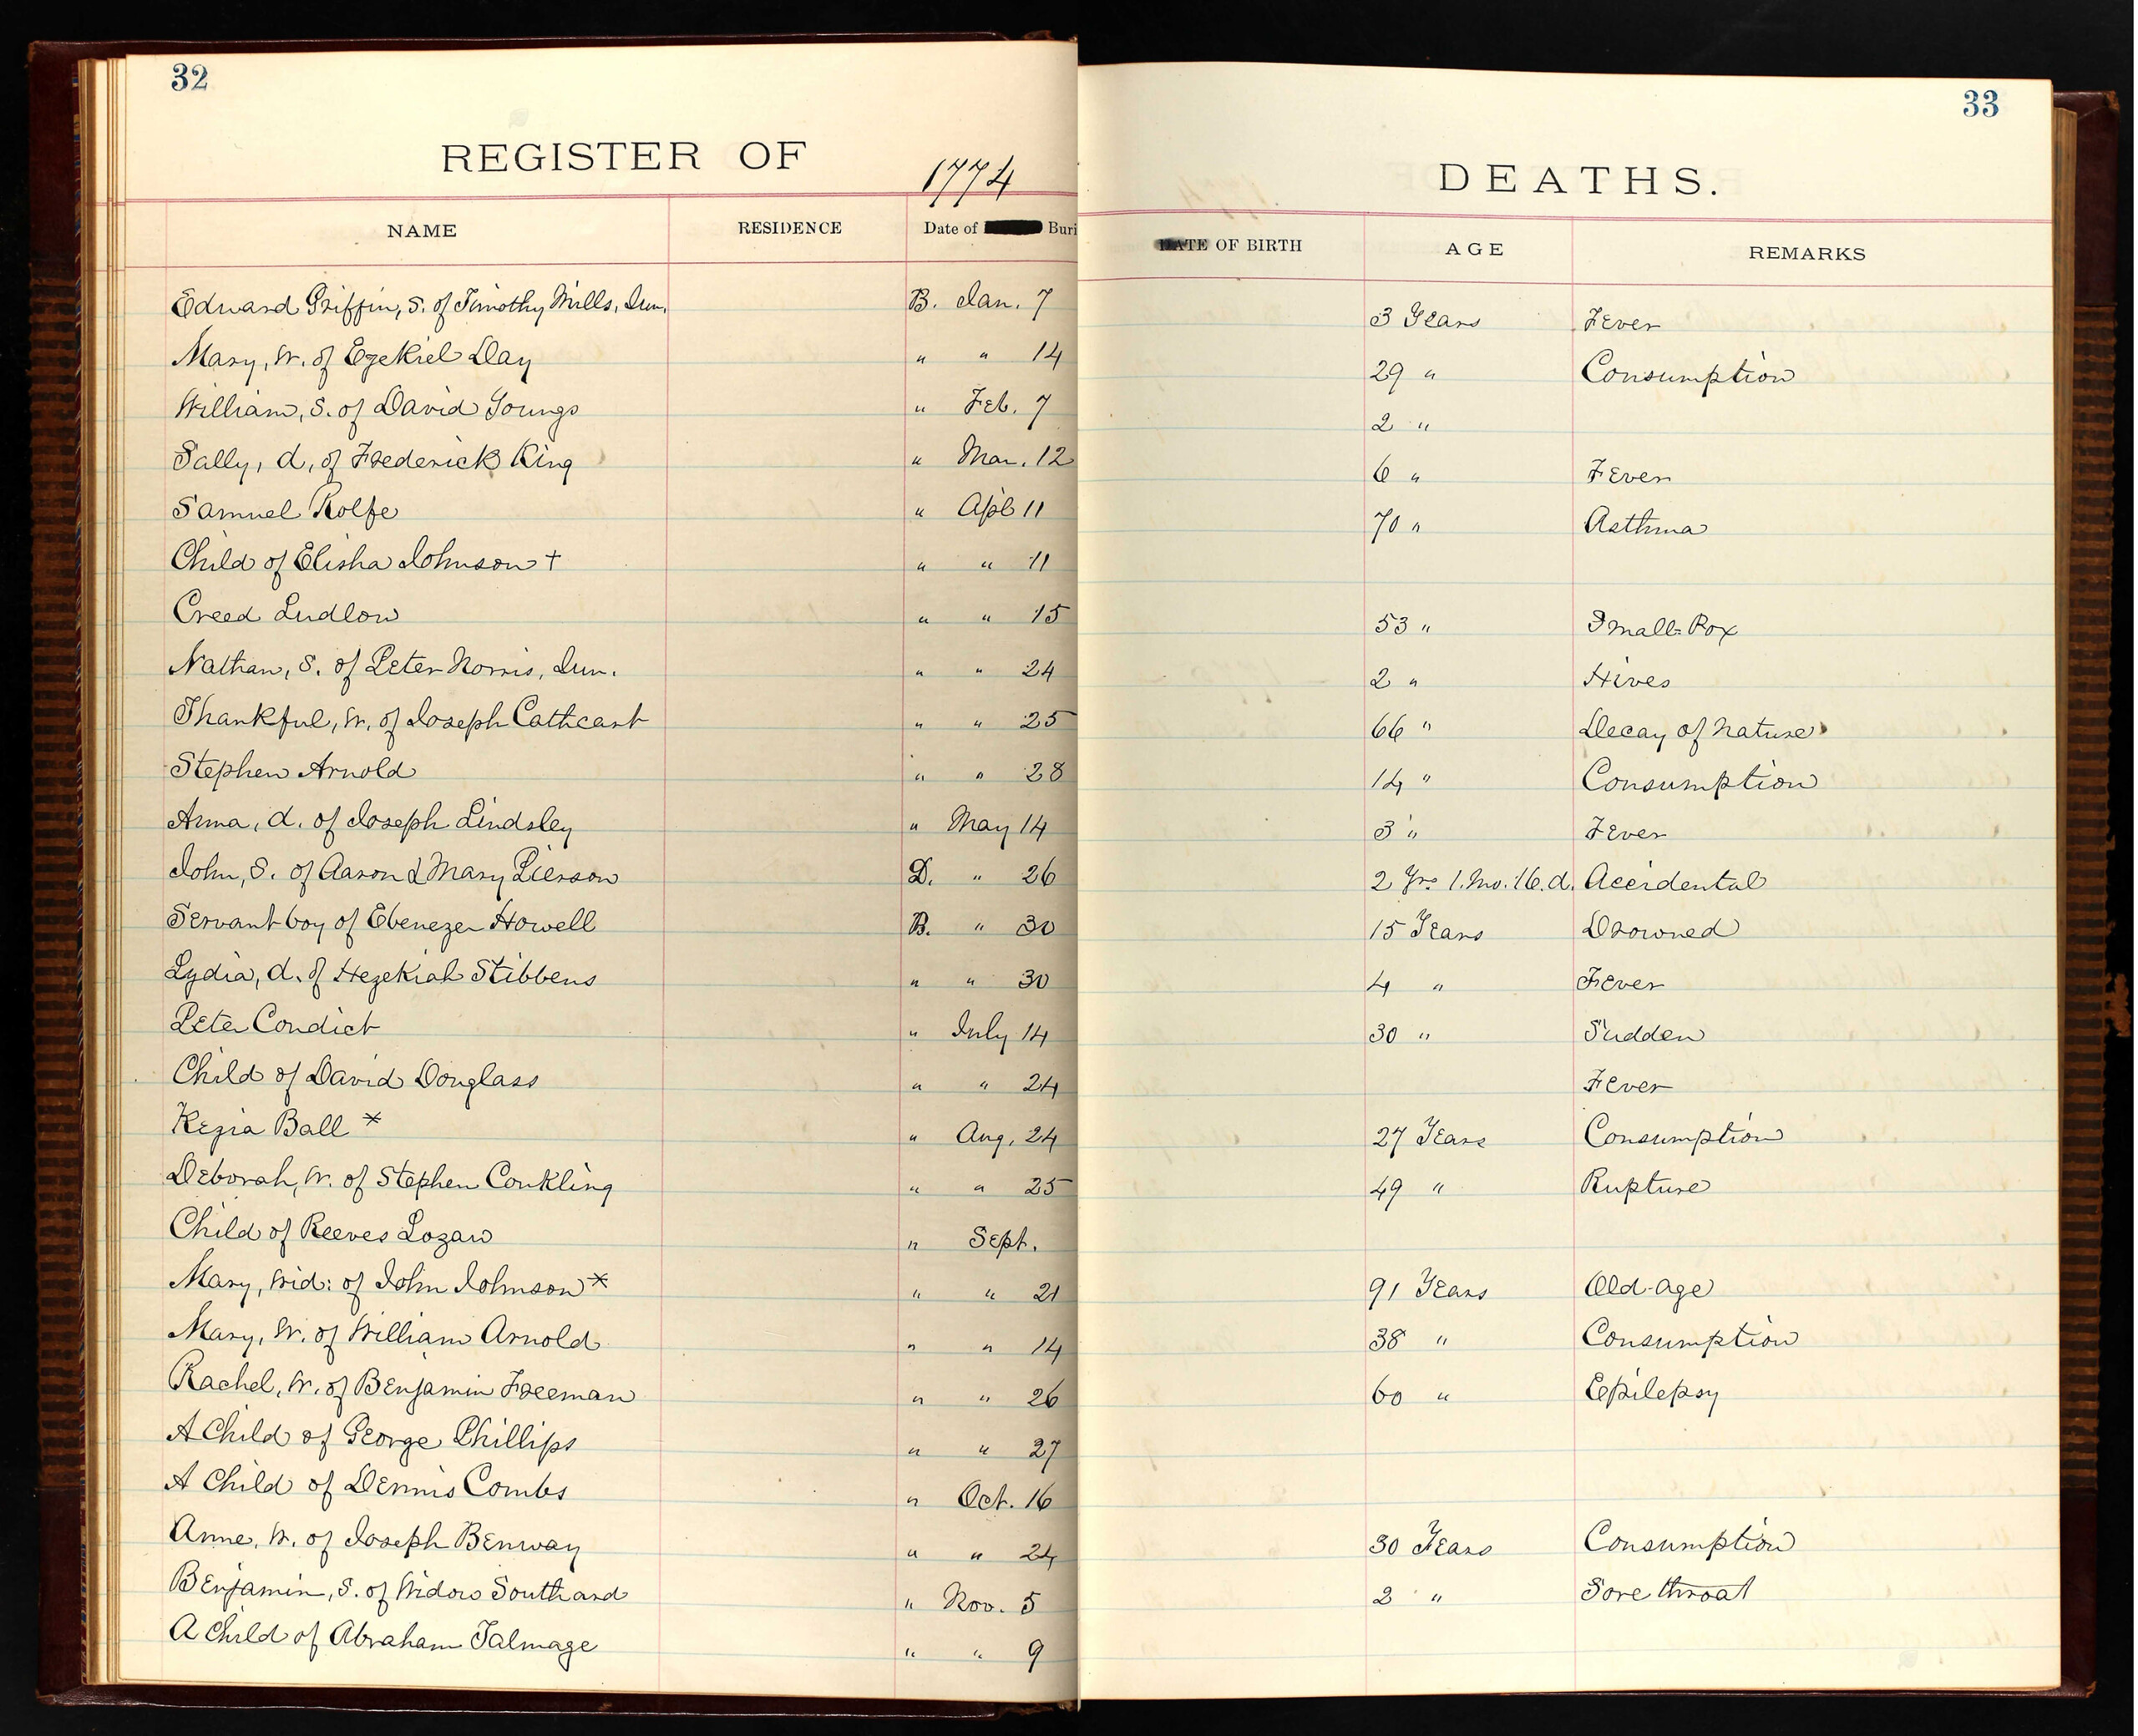 32
REGISTER OF
1774
NAME RESIDENCE Date of Buri
Edward Griffin, S. of Timothy Mills, Jun. B. Jan. 7
Mary, W. of Ezekiel Day " " 14
William, S. of David Youngs " Feb. 7
Sally, d. of Frederick King " Mar. 12
Samuel Rolfe " Apl 11
Child of Elisha Johnson + " " 11
Creed Ludlow " " 15
Nathan, S. of Peter Norris, Jun. " " 24
Thankful, W. of Joseph Cathcart " " 25
Stephen Arnold " " 28
Anna, d. of Joseph Lindsley " May 14
John, S. of Aaron & Mary Pierson D. " 26
Servant boy of Ebenezer Howell B. " 30
Lydia, d. of Hezekiah Stibbens " " 30
Peter Condict " July 14
Child of David Douglass " " 24
Kezia Ball * " Aug. 24
Deborah, W. of Stephen Conkling " " 25
Child of Reeves Lozaw " Sept.
Mary, Wid: of John Johnson * " " 21
Mary, W. of William Arnold " " 14
Rachel, W. of Benjamin Freeman " " 26
A Child of George Phillips " " 27
A Child of Dennis Combs " Oct. 16
Anne, W. of Joseph Benway " " 24
Benjamin, S. of Widow Southard " Nov. 5
A Child of Abraham Talmage " " 9
33
DEATHS.
DATE OF BIRTH AGE REMARKS
3 Years Fever
29 " Consumption
2 "
6 " Fever
70 " Asthma
53 " Small-Pox
2 " Hives
66 " Decay of Nature
14 " Consumption
3 " Fever
2 Yrs. 1. Mo. 16. d. Accidental
15 Years Drowned
4 " Fever
30 " Sudden
Fever
27 Years Consumption
49 " Rupture
91 Years Old-age
38 " Consumption
60 " Epilepsy
30 Years Consumption
2 " Sore throat